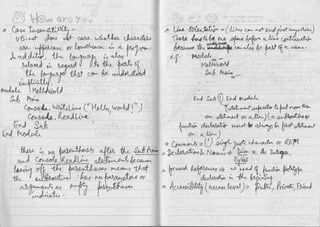 How are you
* Case Insensitivity -
vb.net does not care whether characters
are uppercase or lowercase in a program.
In addition, the language is also
relaxed in regard to the parts of
the language that can be understood
implicitly.
module HelloWorld
Sub Main
Console.WriteLine ("Hello, world!")
Console.ReadLine
End Sub
End module
there is no parentheses after the Sub Main
and Console.ReadLine statements because
leaving off the parentheses means that
the has no parameters or
arguments as empty parentheses
indicate.
* Line Orientation - (lines can not end just anywhere)
There has to be one space before a line continuation
because the can also be part of a name.
e.g Module
HelloWorld
Sub Main
End Sub : End module
statement separator to put more than
one statement on a line) (a subroutine or
function declaration must always be first statement
on a line)
* Comments = (') single quote character or REM
* Declarations & Names = Dim x As Integer,
* forward References = no need of function prototype
declaration in the beginning
* Accessibility (access level) = Public, Private, Friend